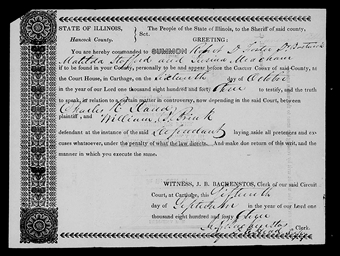 STATE OF ILLINOIS,
Hancock County.
Sct.
The People of the State of Illinois, to the Sheriff of said county,
GREETING:
You are hereby commanded to SUMMON Robert D. Foster
Matilda Stafford and
if to be found in your county, personally to be and appear before the Circuit Court of said County, at
the Court House, in Carthage, on the day of October
in the year of our Lord one thousand eight hundred and forty three to testify, and the truth
to speak, in relation to a certain matter in controversy, now depending in the said Court, between
Charles H.
plaintiff, and William
defendant at the instance of the said Defendant laying aside all pretences and ex-
cuses whatsoever, under the penalty of what the law directs. And make due return of this writ, and the
manner in which you execute the same.
WITNESS, J. B. BACKENSTOS, Clerk of our said Circuit
Court, at Carthage, this fifteenth
day of September in the year of our Lord one
thousand eight hundred and forty three
Clerk.